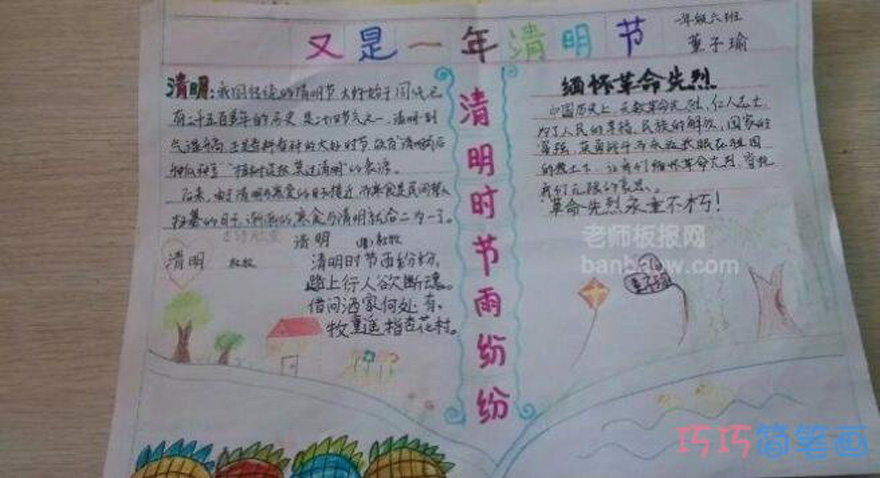 又是一年清明节
一年级六班
董子瑜
清明:我国传统的清明节大约始于周代,已
有二千五百多年的历史
清明一到
气温升高,正是春耕春种的大好时节,故有"清明前后
种瓜种豆""植树造林莫过清明"的农谚。
后来,由于清明与寒食的日子接近,而寒食是民间禁火
扫墓的日子,渐渐的寒食与清明就合二为一了。
清明 杜牧
清明
清明时节雨纷纷,
路上行人欲断魂。
借问酒家何处有,
牧童遥指杏花村。
清明时节雨纷纷
缅怀革命先烈
中国历史上,无数革命先烈,仁人志士,
为了人民的幸福,民族的解放,国家的
富强,英勇战斗而永远长眠在祖国
的热土下,让我们缅怀革命先烈,寄托
我们无限的哀思。
革命先烈永垂不朽!
老师板报网
banbaow.com
董子瑜
巧巧简笔画